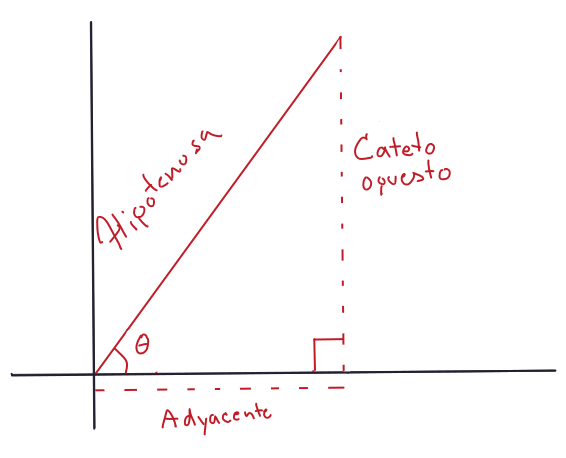 Hipotenusa
Cateto
opuesto
θ
Adyacente